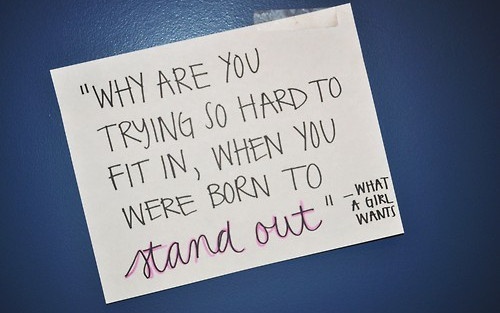 "WHY ARE YOU
TRYING SO HARD TO
FIT IN, WHEN YOU
WERE BORN TO
stand out"
—WHAT
A GIRL
WANTS